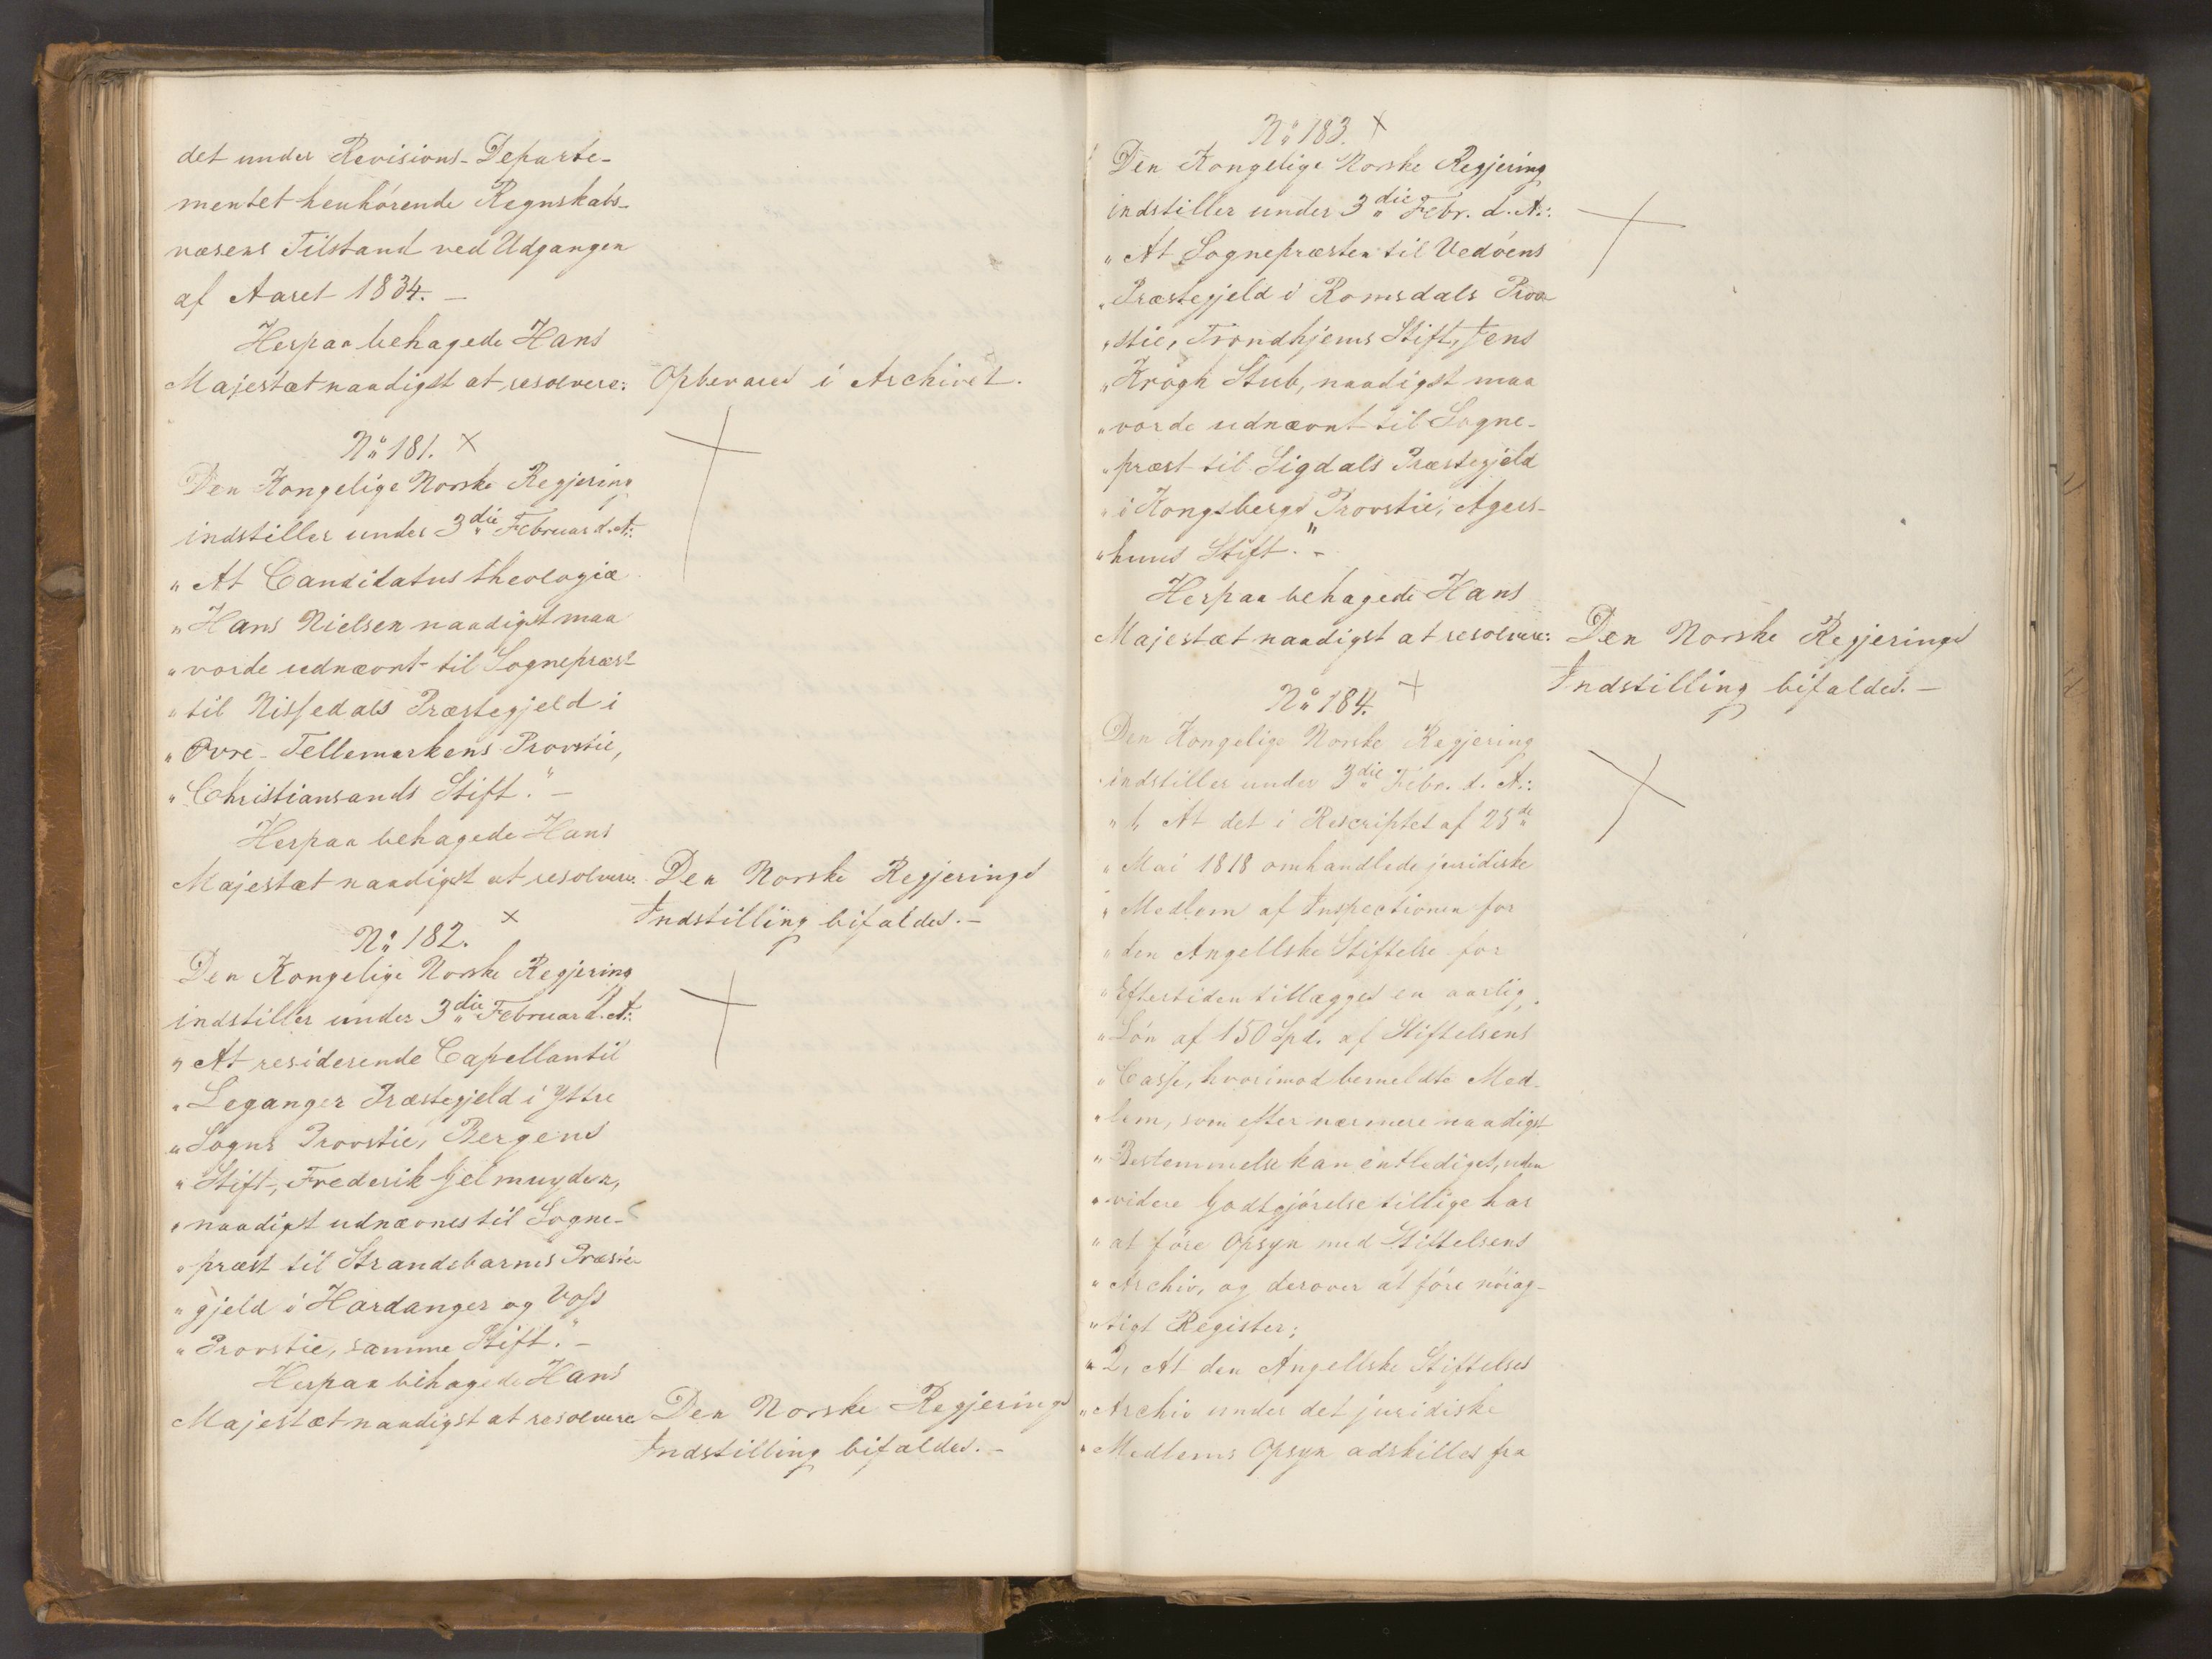 det under Revisions-Departe-
mentet henhörende Regnskabs-
væsens Tilstand ved Udgangen
af Aaret 1834. -
Herpaa behagede Hans
Majestæt naadigst at resolvere: Opbevares i Archivet.
No 181. X
Den Kongelige Norske Regjering
indstiller under 3die Februar d. A:
"At Candidatus theologiæ
"Hans Nielsen naadigst maa
"vorde udnævnt til Sognepræst
"til Nissedals Præstegjeld i
"Øvre-Tellemarkens Provstie,
"Christiansands Stift." -
Herpaa behagede Hans
Majestæt naadigst at resolvere: Den Norske Regjerings
Indstilling bifaldes. -
No 182. X
Den Kongelige Norske Regjering
indstiller under 3die Februar d. A:
"At residerende Capellan til
"Leganger Præstegjeld i Yttre
"Sogns Provstie, Bergens
"Stift, Frederik Gjelmuyden,
"naadigst udnævnes til Sogne-
"præst til Strandebarms Præste-
"gjeld i Hardanger og Voss
"Provstie, samme Stift." -
Herpaa behagede Hans
Majestæt naadigst at resolvere Den Norske Regjerings
Indstilling bifaldes. -
No 183. X
Den Kongelige Norske Regjering
indstiller under 3die Febr. d. A.:
"At Sognepræsten til Vedöens
"Præstegjeld i Romsdals Prov-
"stie, Trondhjems Stift, Jens
"Krogh Stub, naadigst maa
"vorde udnævnt til Sogne-
"præst til Sigdals Præstegjeld
"i Kongsbergs Provstie, Agers-
"huus Stift." -
Herpaa behagede Hans
Majestæt naadigst at resolvere: Den Norske Regjerings
Indstilling bifaldes. -
No 184. X
Den Kongelige Norske Regjering
indstiller under 3die Febr. d. A.:
"1, At det i Rescriptet af 25de
"Mai 1818 omhandlede juridiske
"Medlem af Inspectionen for
"den Angellske Stiftelse for
"Eftertiden tillægges en aarlig
"Lön af 150 Spd. af Stiftelsens
"Casse, hvorimod bemeldte Med-
"lem, som efter nærmere naadigst
"Bestemmelse kan entlediges, uden
"videre Godtgjörelse tillige har
"at före Opsyn med Stiftelsens
"Archiv, og derover at före nöiag-
"tigt Register;
"2, At den Angellske Stiftelses
"Archiv under det juridiske
"Medlems Opsyn adskilles fra